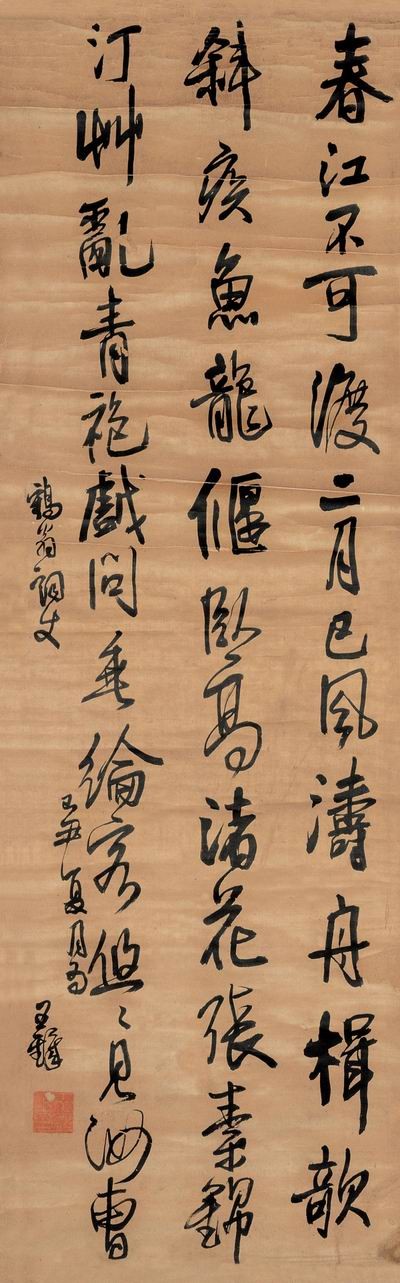 春江不可渡二月已風濤舟楫欹
斜疾魚龍偃臥高渚花張素錦
汀艸亂青袍戲問垂綸客悠〻見汝曹
鶴翁詞丈
己丑夏月為
王鐸